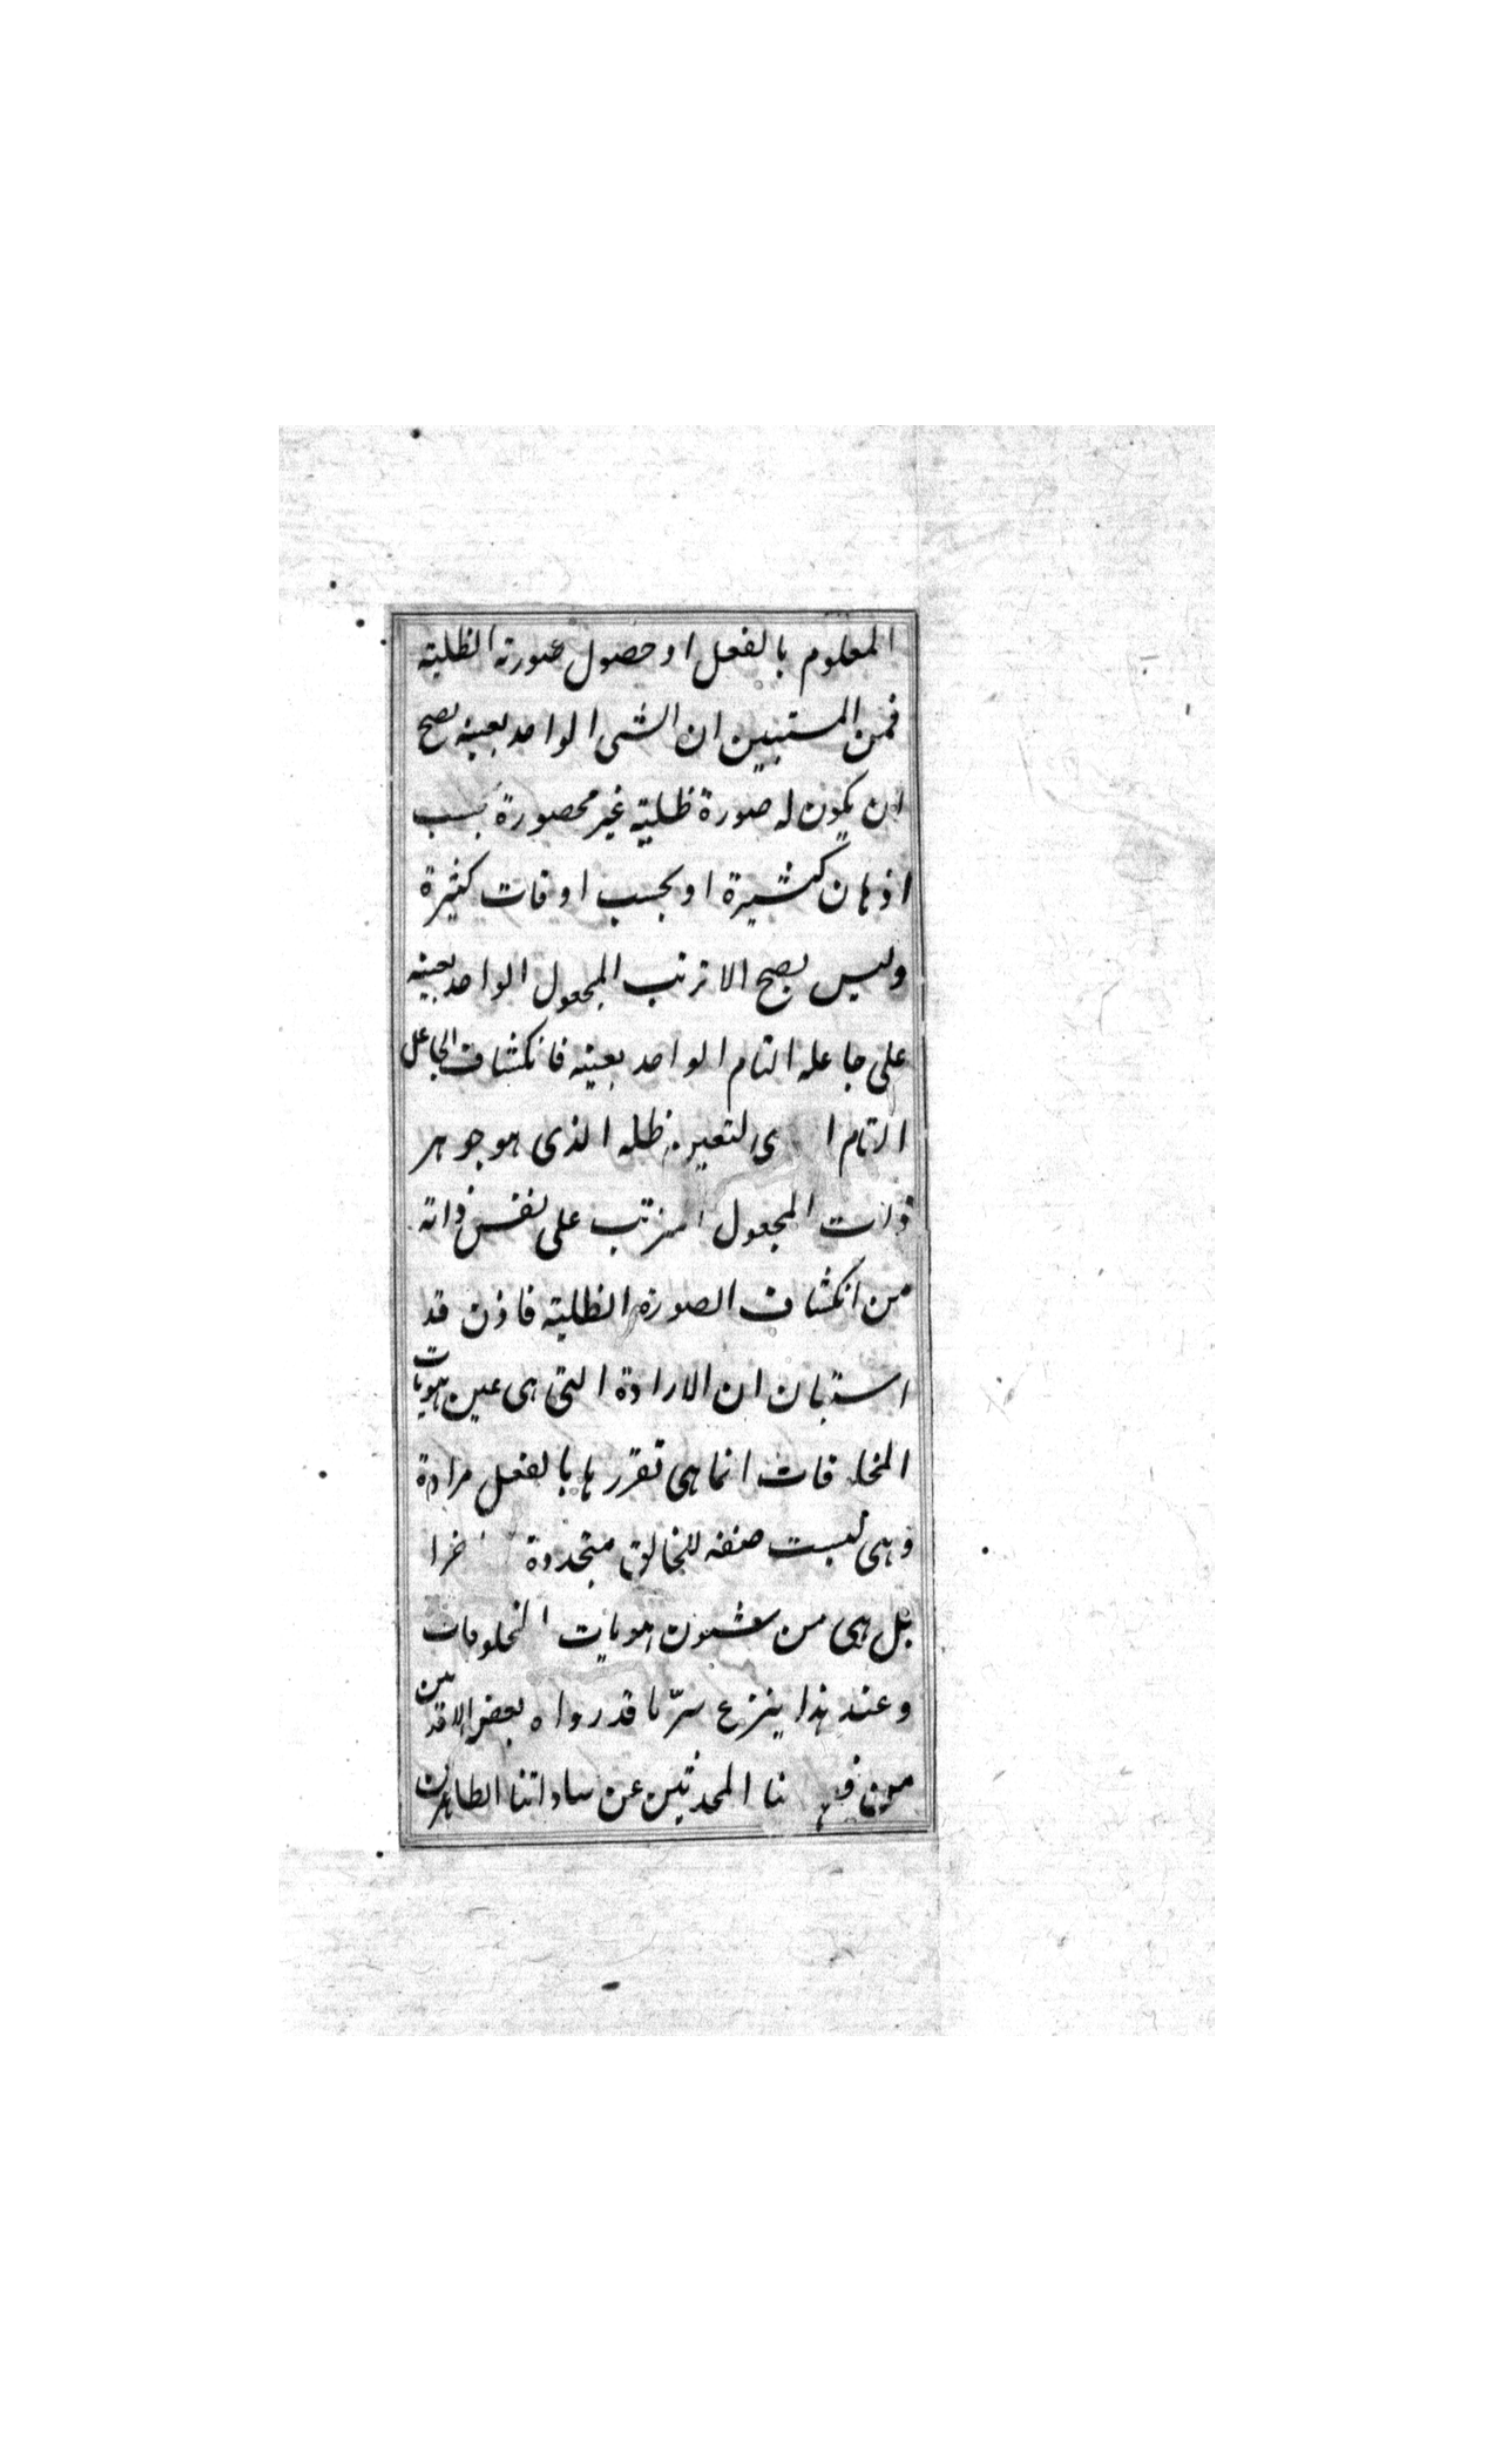 المعلوم بالفعل او حصول صورته الظلية
فمن المستبين ان الشى الواحد بعينه يصح
ان يكون له صورة ظلية غير محصورة بحسب
اذهان كثيرة او بحسب اوقات كثيرة
وليس يصح الا ترتب المجعول الواحد بعينه
على جاعله التام الواحد بعينه فانكشاف الجاعل
التام ظله الذى هو جوهر
ذات المجعول المترتب على نفس ذاته
من انكشاف الصورة الظلية فاذن قد
استبان ان الارادة التى هى عين هويات
المخلوقات انما هى تقررها بالفعل مرادة
وهى ليست صفة للخالق متجددة
بل هى من شئون هويات المخلوقات
وعند هذا ينزع سرّ ما قد رواه بعض الاقدمين
من المحدثين عن ساداتنا الطاهرين